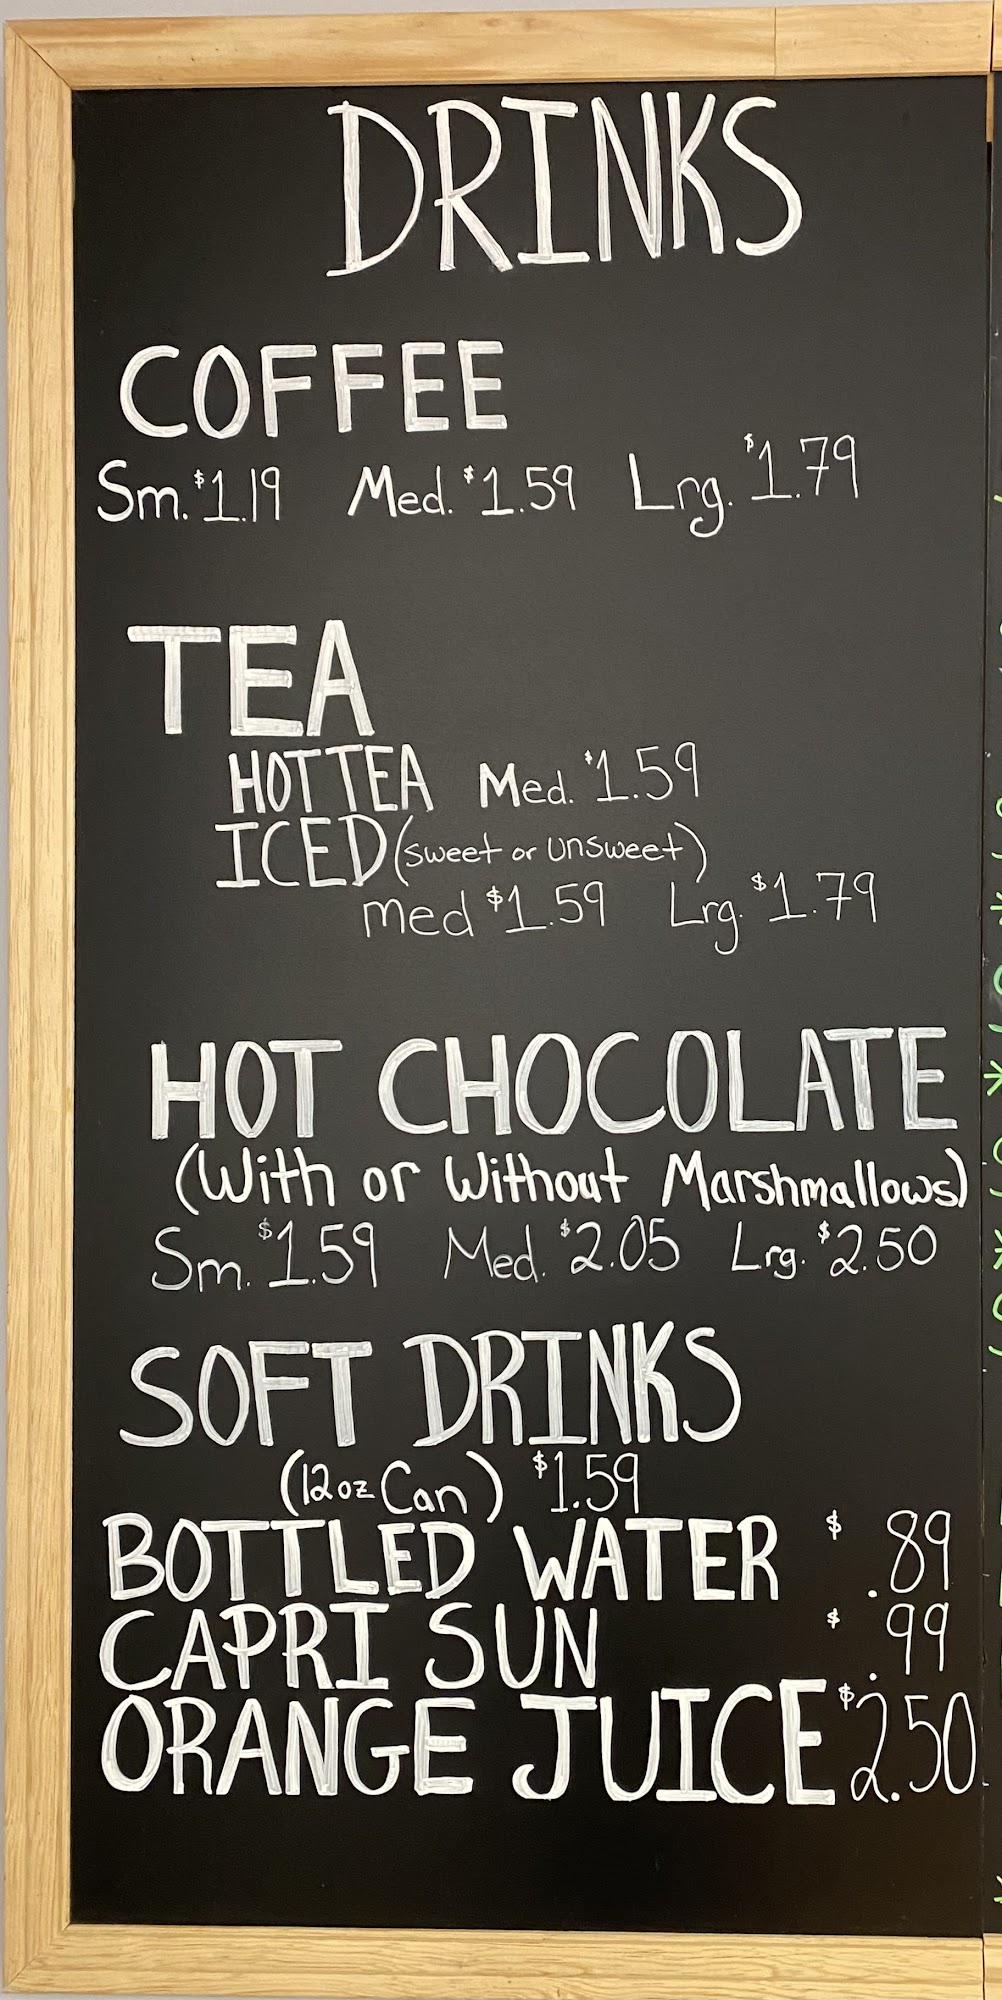 DRINKS
COFFEE
Sm. $1.19 Med. $1.59 Lrg. $1.79
TEA
HOT TEA Med. $1.59
ICED (sweet or unsweet)
med $1.59 Lrg. $1.79
HOT CHOCOLATE
(With or Without Marshmallows)
Sm. $1.59 Med. $2.05 Lrg. $2.50
SOFT DRINKS
(12oz Can) $1.59
BOTTLED WATER $ .89
CAPRI SUN $ .99
ORANGE JUICE $2.50